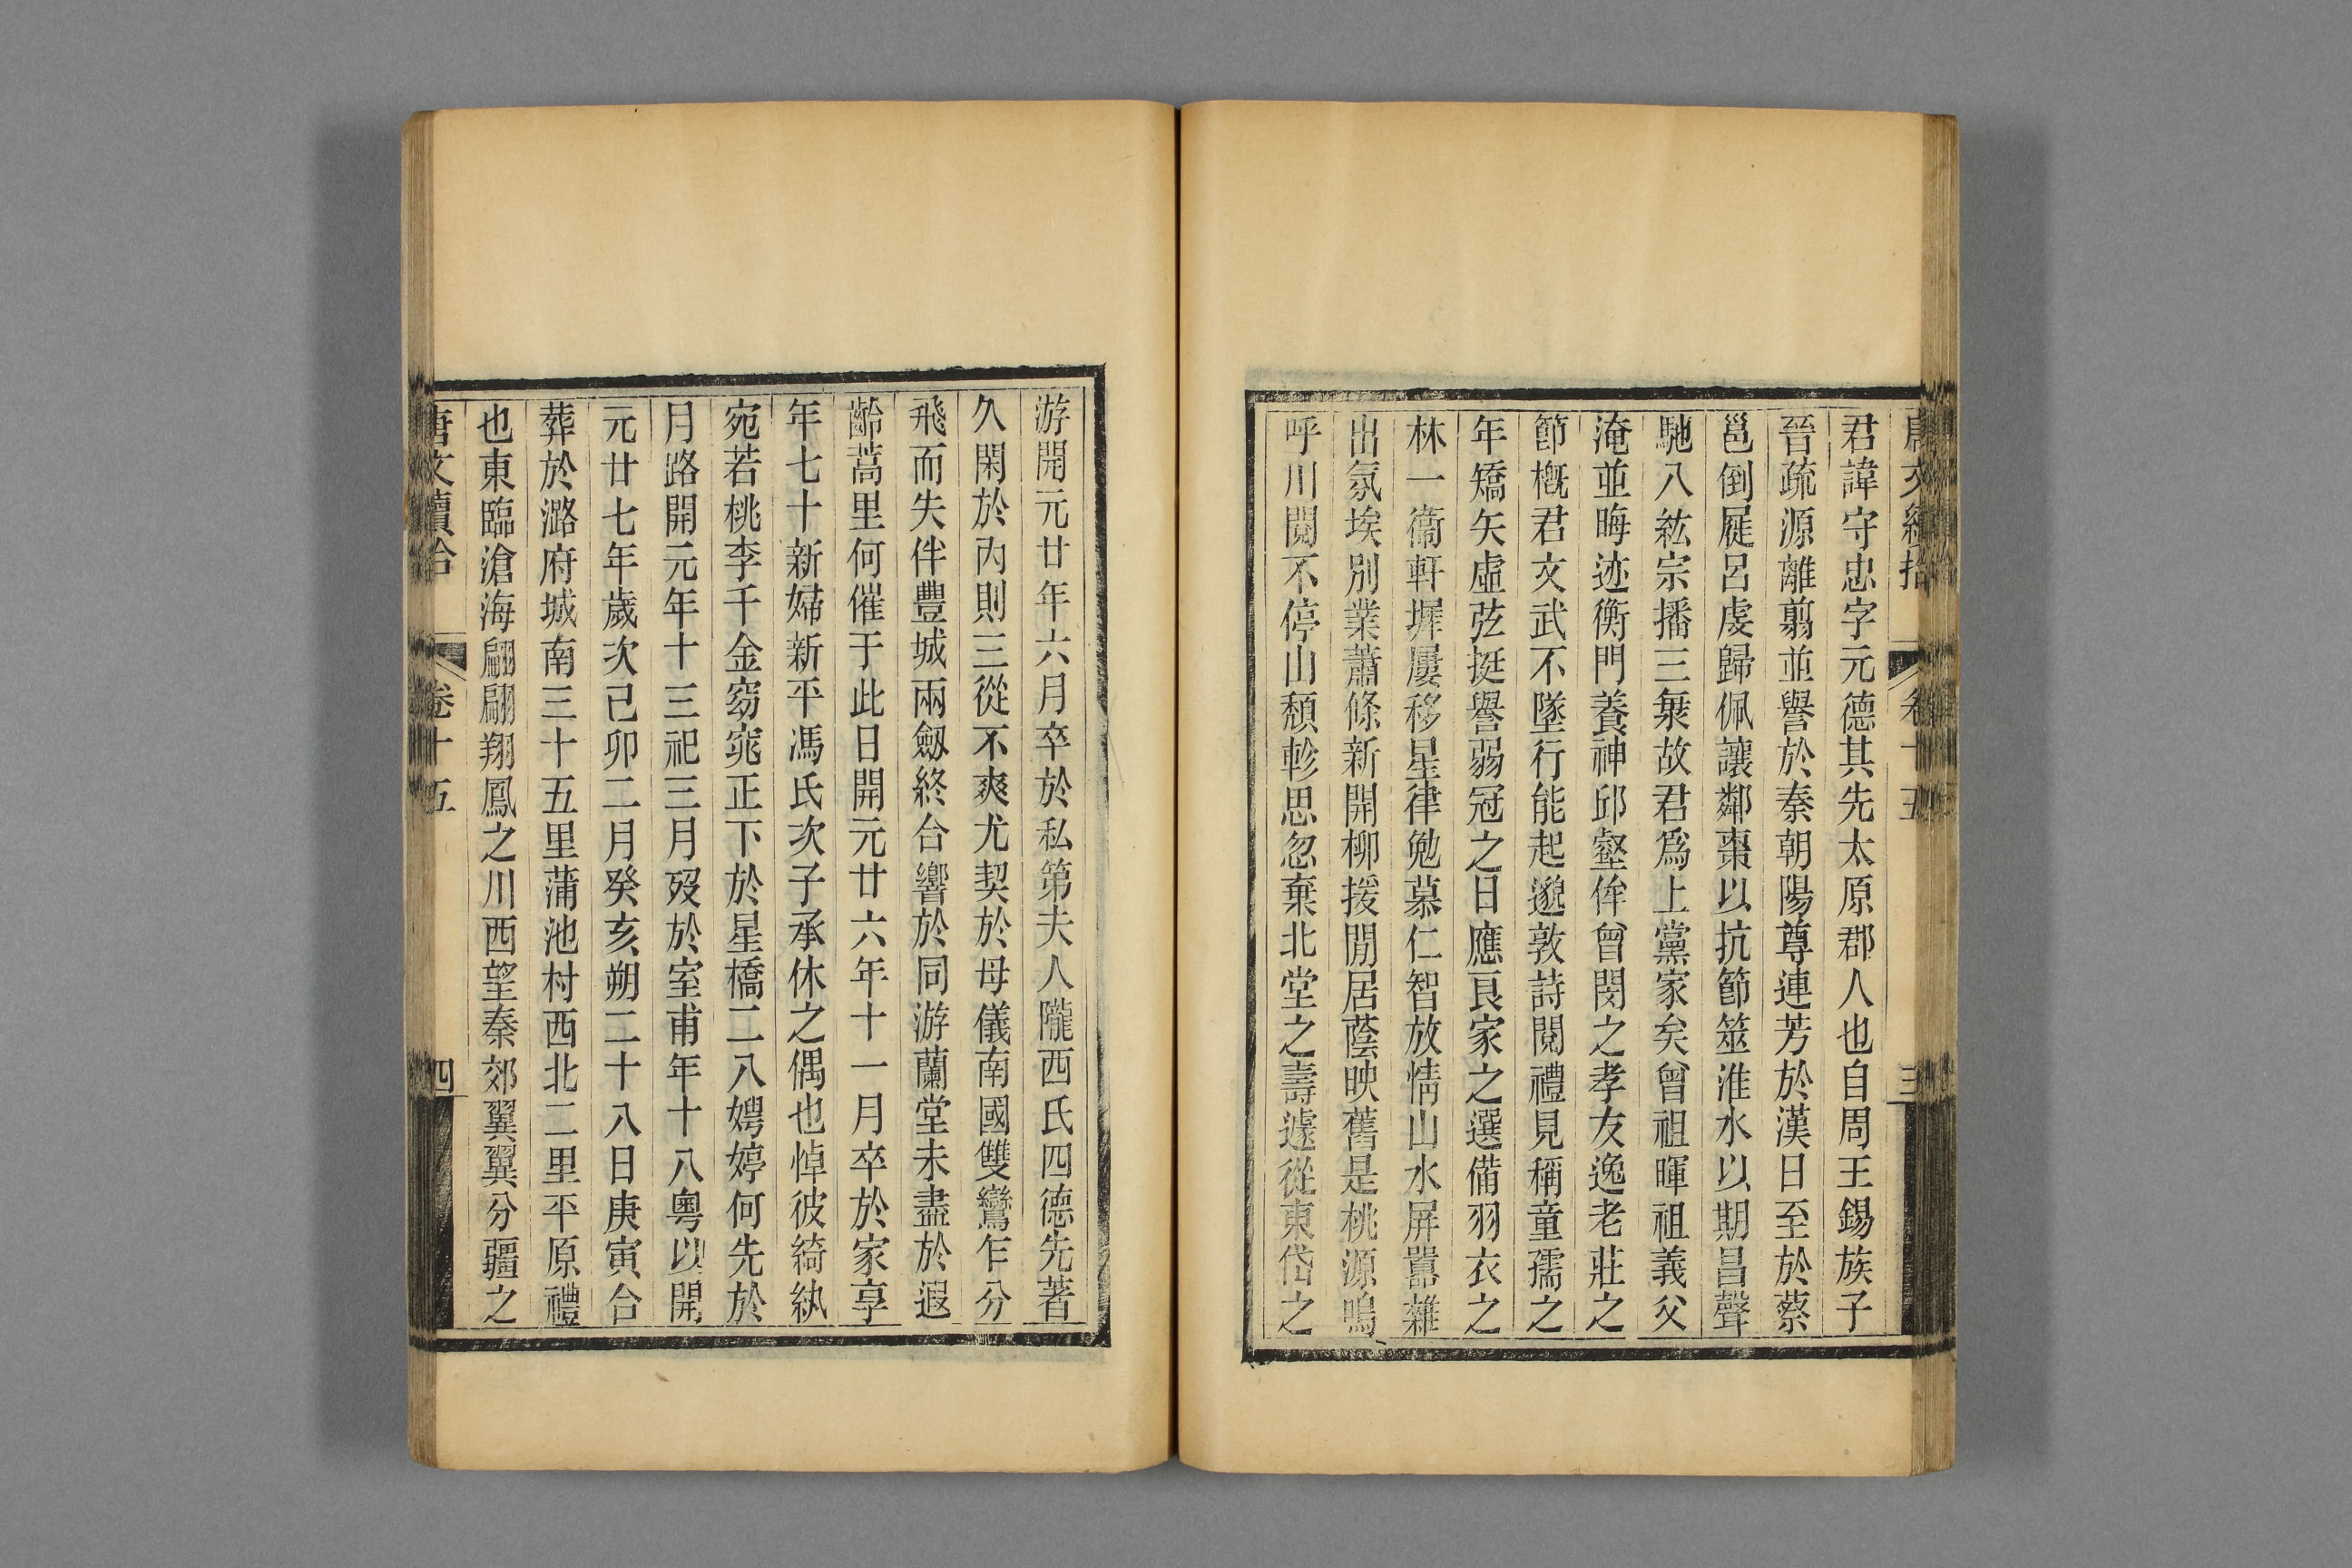 唐文續拾 卷十五 三
君諱守忠字元德其先太原郡人也自周王錫族子
晉疏源離翦並譽於秦朝陽尊連芳於漢日至於蔡
邕倒屣呂虔歸佩讓鄰棗以抗節筮淮水以期昌聲
馳八紘宗播三㮤故君爲上黨家矣曾祖暉祖義父
淹並晦迹衡門養神邱壑侔曾閔之孝友逸老莊之
節槪君文武不墜行能起邈敦詩閱禮見稱童孺之
年矯矢虛弦挺譽弱冠之日應良家之選備羽衣之
林一衞軒墀屢移星律勉慕仁智放情山水屏囂雜
出氛埃別業蕭條新開柳援閒居蔭映舊是桃源嗚
呼川閱不停山頹軫思忽棄北堂之壽遽從東岱之
游開元廿年六月卒於私第夫人隴西氏四德先著
久閑於內則三從不爽尤契於母儀南國雙鸞乍分
飛而失伴豐城兩劒終合響於同游蘭堂未盡於遐
齡蒿里何催于此日開元廿六年十一月卒於家享
年七十新婦新平馮氏次子承休之偶也悼彼綺紈
宛若桃李千金窈窕正下於星橋二八娉婷何先於
月路開元年十三祀三月歿於室甫年十八粵以開
元廿七年歲次己卯二月癸亥朔二十八日庚寅合
葬於潞府城南三十五里蒲池村西北二里平原禮
也東臨滄海翩翩翔鳳之川西望秦郊翼翼分疆之
唐文續拾 卷十五 四